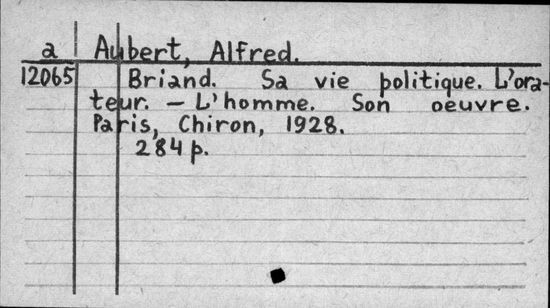 a Aubert, Alfred.
12065 Briand. Sa vie politique. L'ora-
teur. - L'homme. Son oeuvre.
Paris, Chiron, 1928.
284 p.